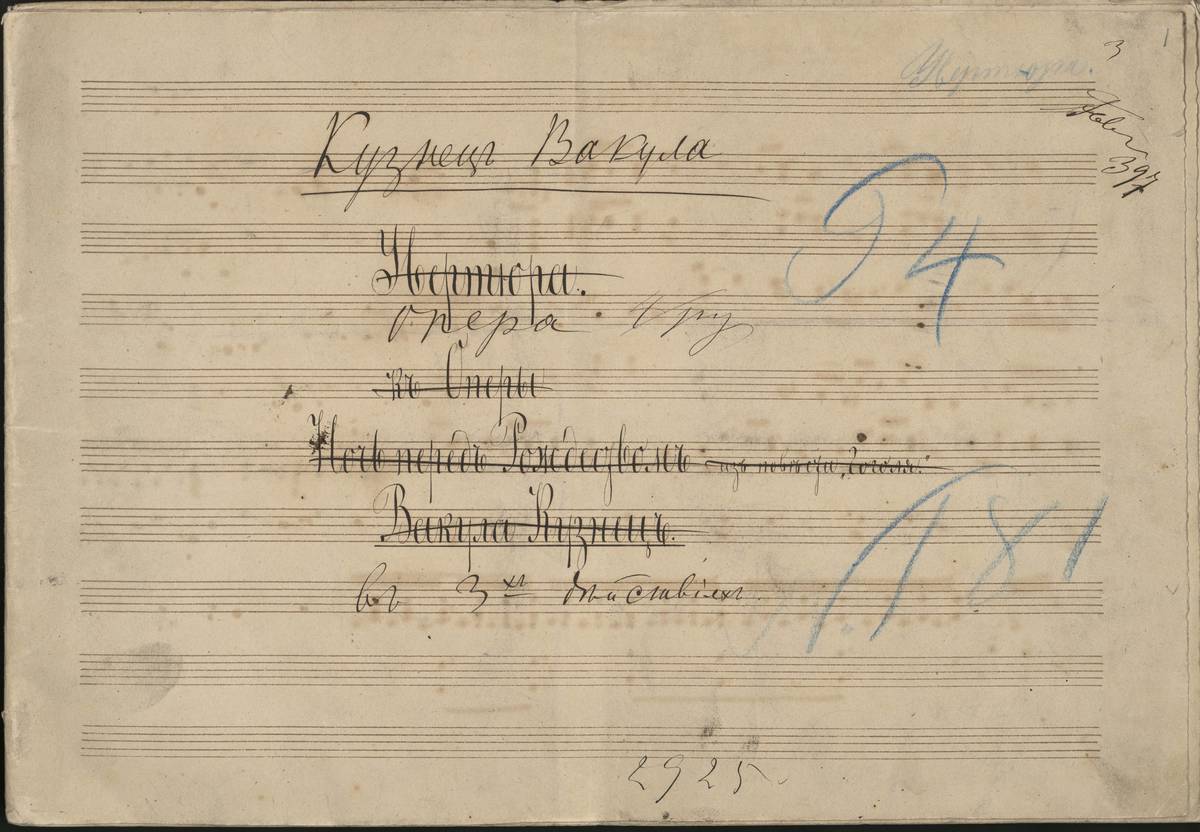 Увертюра.
3
1
397
Кузнецъ Вакула
Увертюра.
94
опера
къ Оперы
Ночь передъ Рождествомъ изъ повѣсти „Гоголя“
Вакула Кузнецъ.
181
въ 3хъ дѣйствіяхъ.
2925.